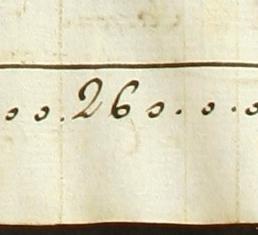 o o . 26 o . o . o